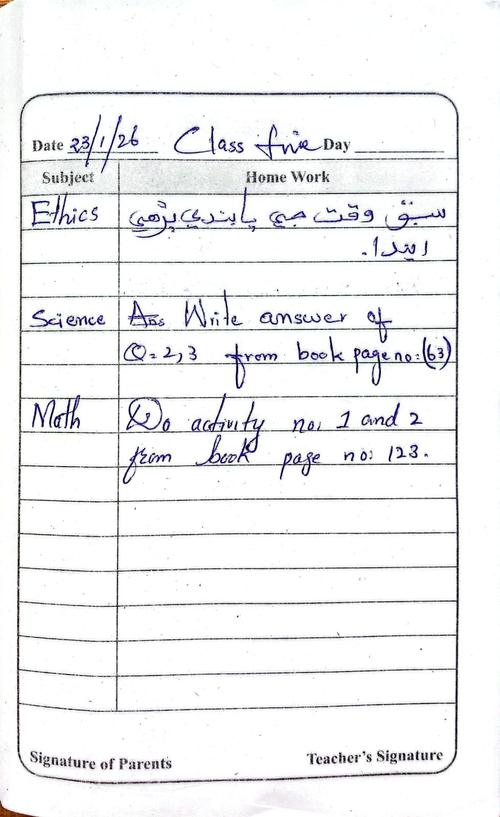 Date 23/1/26 Class five Day
Subject Home Work
Ethics سبق وقت جي پابندي پڙهي
ايندا.
Science Ans Write answer of
Q=2,3 from book page no:(63)
Math Do activity no, 1 and 2
from book page no: 123.
Signature of Parents Teacher's Signature